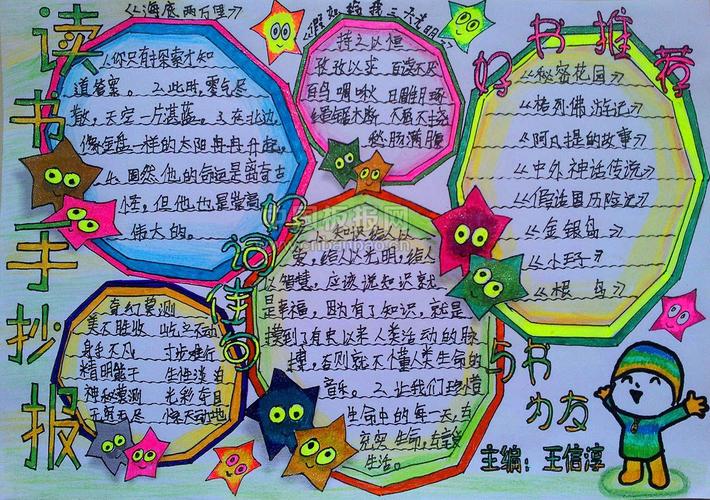 读书手抄报
《海底两万里》
1.你只有探索才知
道答案。2.此时,雾气尽
散,天空一片湛蓝。3.在北边,
像金盘一样的太阳冉冉升起。
4.固然,他的命运是离奇古
怪,但他也是崇高、
伟大的。
《假如给我三天光明》
持之以恒
孜孜以求 百读不厌
百鸟啁啾
不屈不挠
愁肠满腹
好书推荐
《秘密花园》
《格列佛游记》
《阿凡提的故事》
《中外神话传说》
《假话国历险记》
《金银岛》
《小王子》
《根鸟》
好词佳句
奇幻莫测
美不胜收 屹立不动
身手不凡 寸步难行
精明能干 生性淡泊
神秘莫测 光彩夺目
无穷无尽 惊天动地
1.知识给人以
爱,给人以光明,给人
以智慧,应该说知识就
是幸福,因为有了知识,就是
摸到了有史以来人类活动的脉
搏,否则就不懂人类生命的
音乐。2.让我们珍惜
生命中的每一天,去
充实生命,去享受
生活。
与书
为友
主编:王信淳